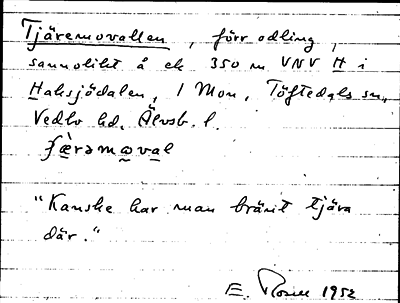 Tjäremovallen, förr odling,
sannolikt å ek 350 m VNV H i
Haksjödalen, 1 Mon, Töftedals sn,
Vedbo hd, Älvsb. l.
"Kanske har man bränt tjära
där."
E. 1952